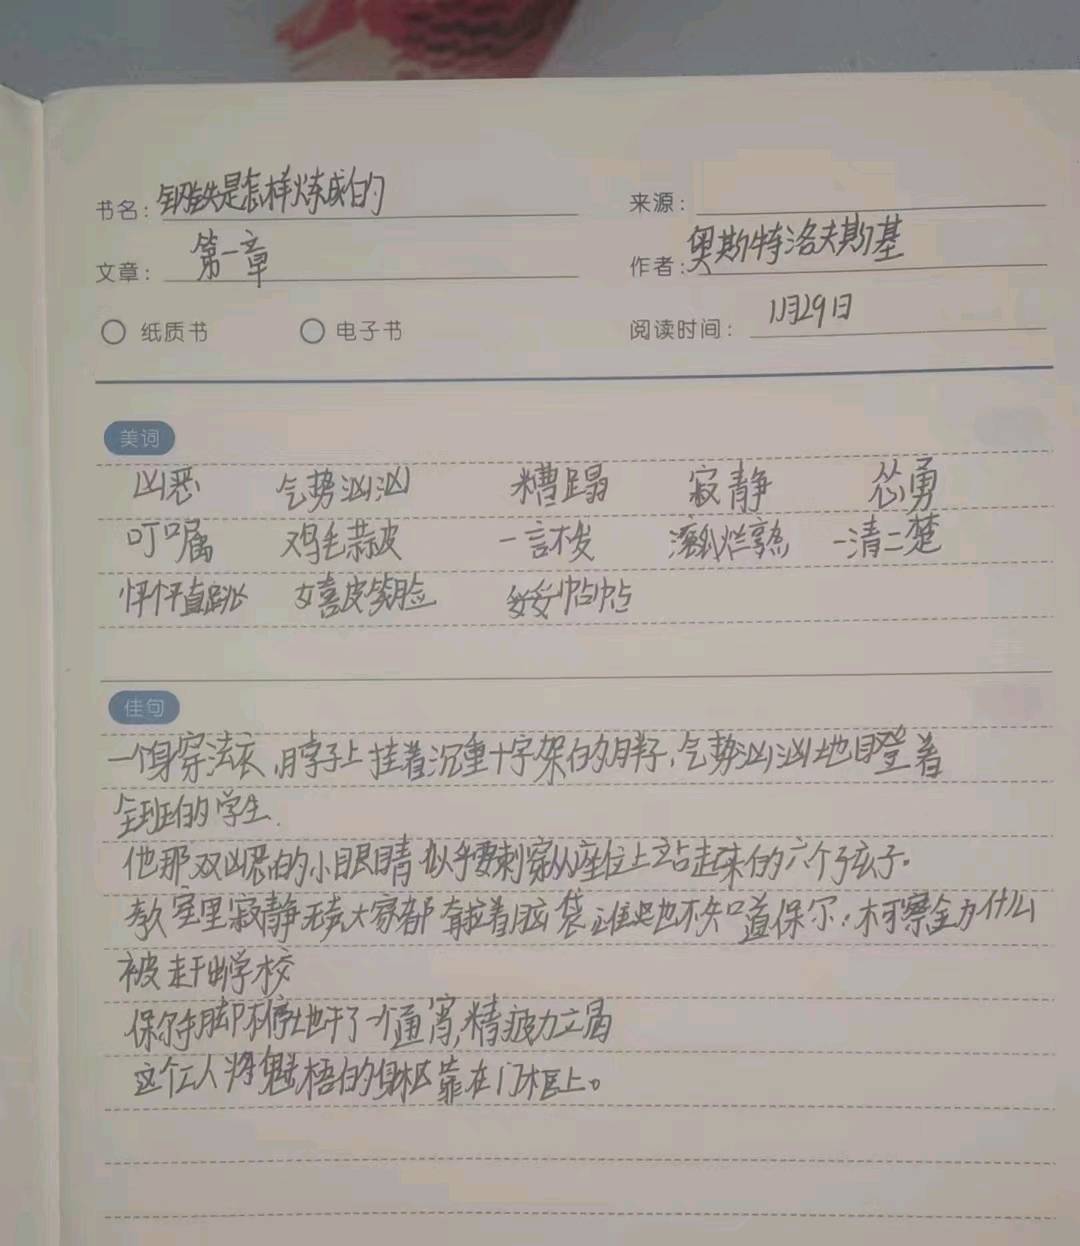 书名：钢铁是怎样炼成的 来源：
文章：第一章 作者：奥斯特洛夫斯基
纸质书 电子书 阅读时间：1月29日
美词
凶恶 气势汹汹 糟蹋 寂静 怂勇
叮嘱 鸡毛蒜皮 一言不发 滚瓜烂熟 一清二楚
怦怦直跳 嬉皮笑脸 妥妥帖帖
佳句
一个身穿法衣，脖子上挂着沉重十字架的胖子，气势汹汹地瞪着
全班的学生.
他那双凶恶的小眼睛似乎要刺穿从座位上站起来的六个孩子。
教室里寂静无声大家都耷拉着脑袋谁也不知道保尔·柯察金为什么
被赶出学校
保尔手脚不停地干了一个通宵,精疲力竭
这个工人将魁梧的身躯靠在门框上。